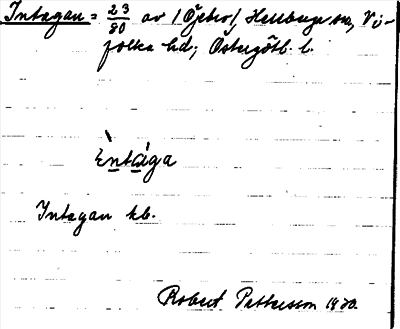 Intagan = 23/80 av /Öjebro/, Hellberga sn, Vi-
folka hd; Östergötl. l.
Èntága
Intagan kb.
Robert Pettersson 1920.